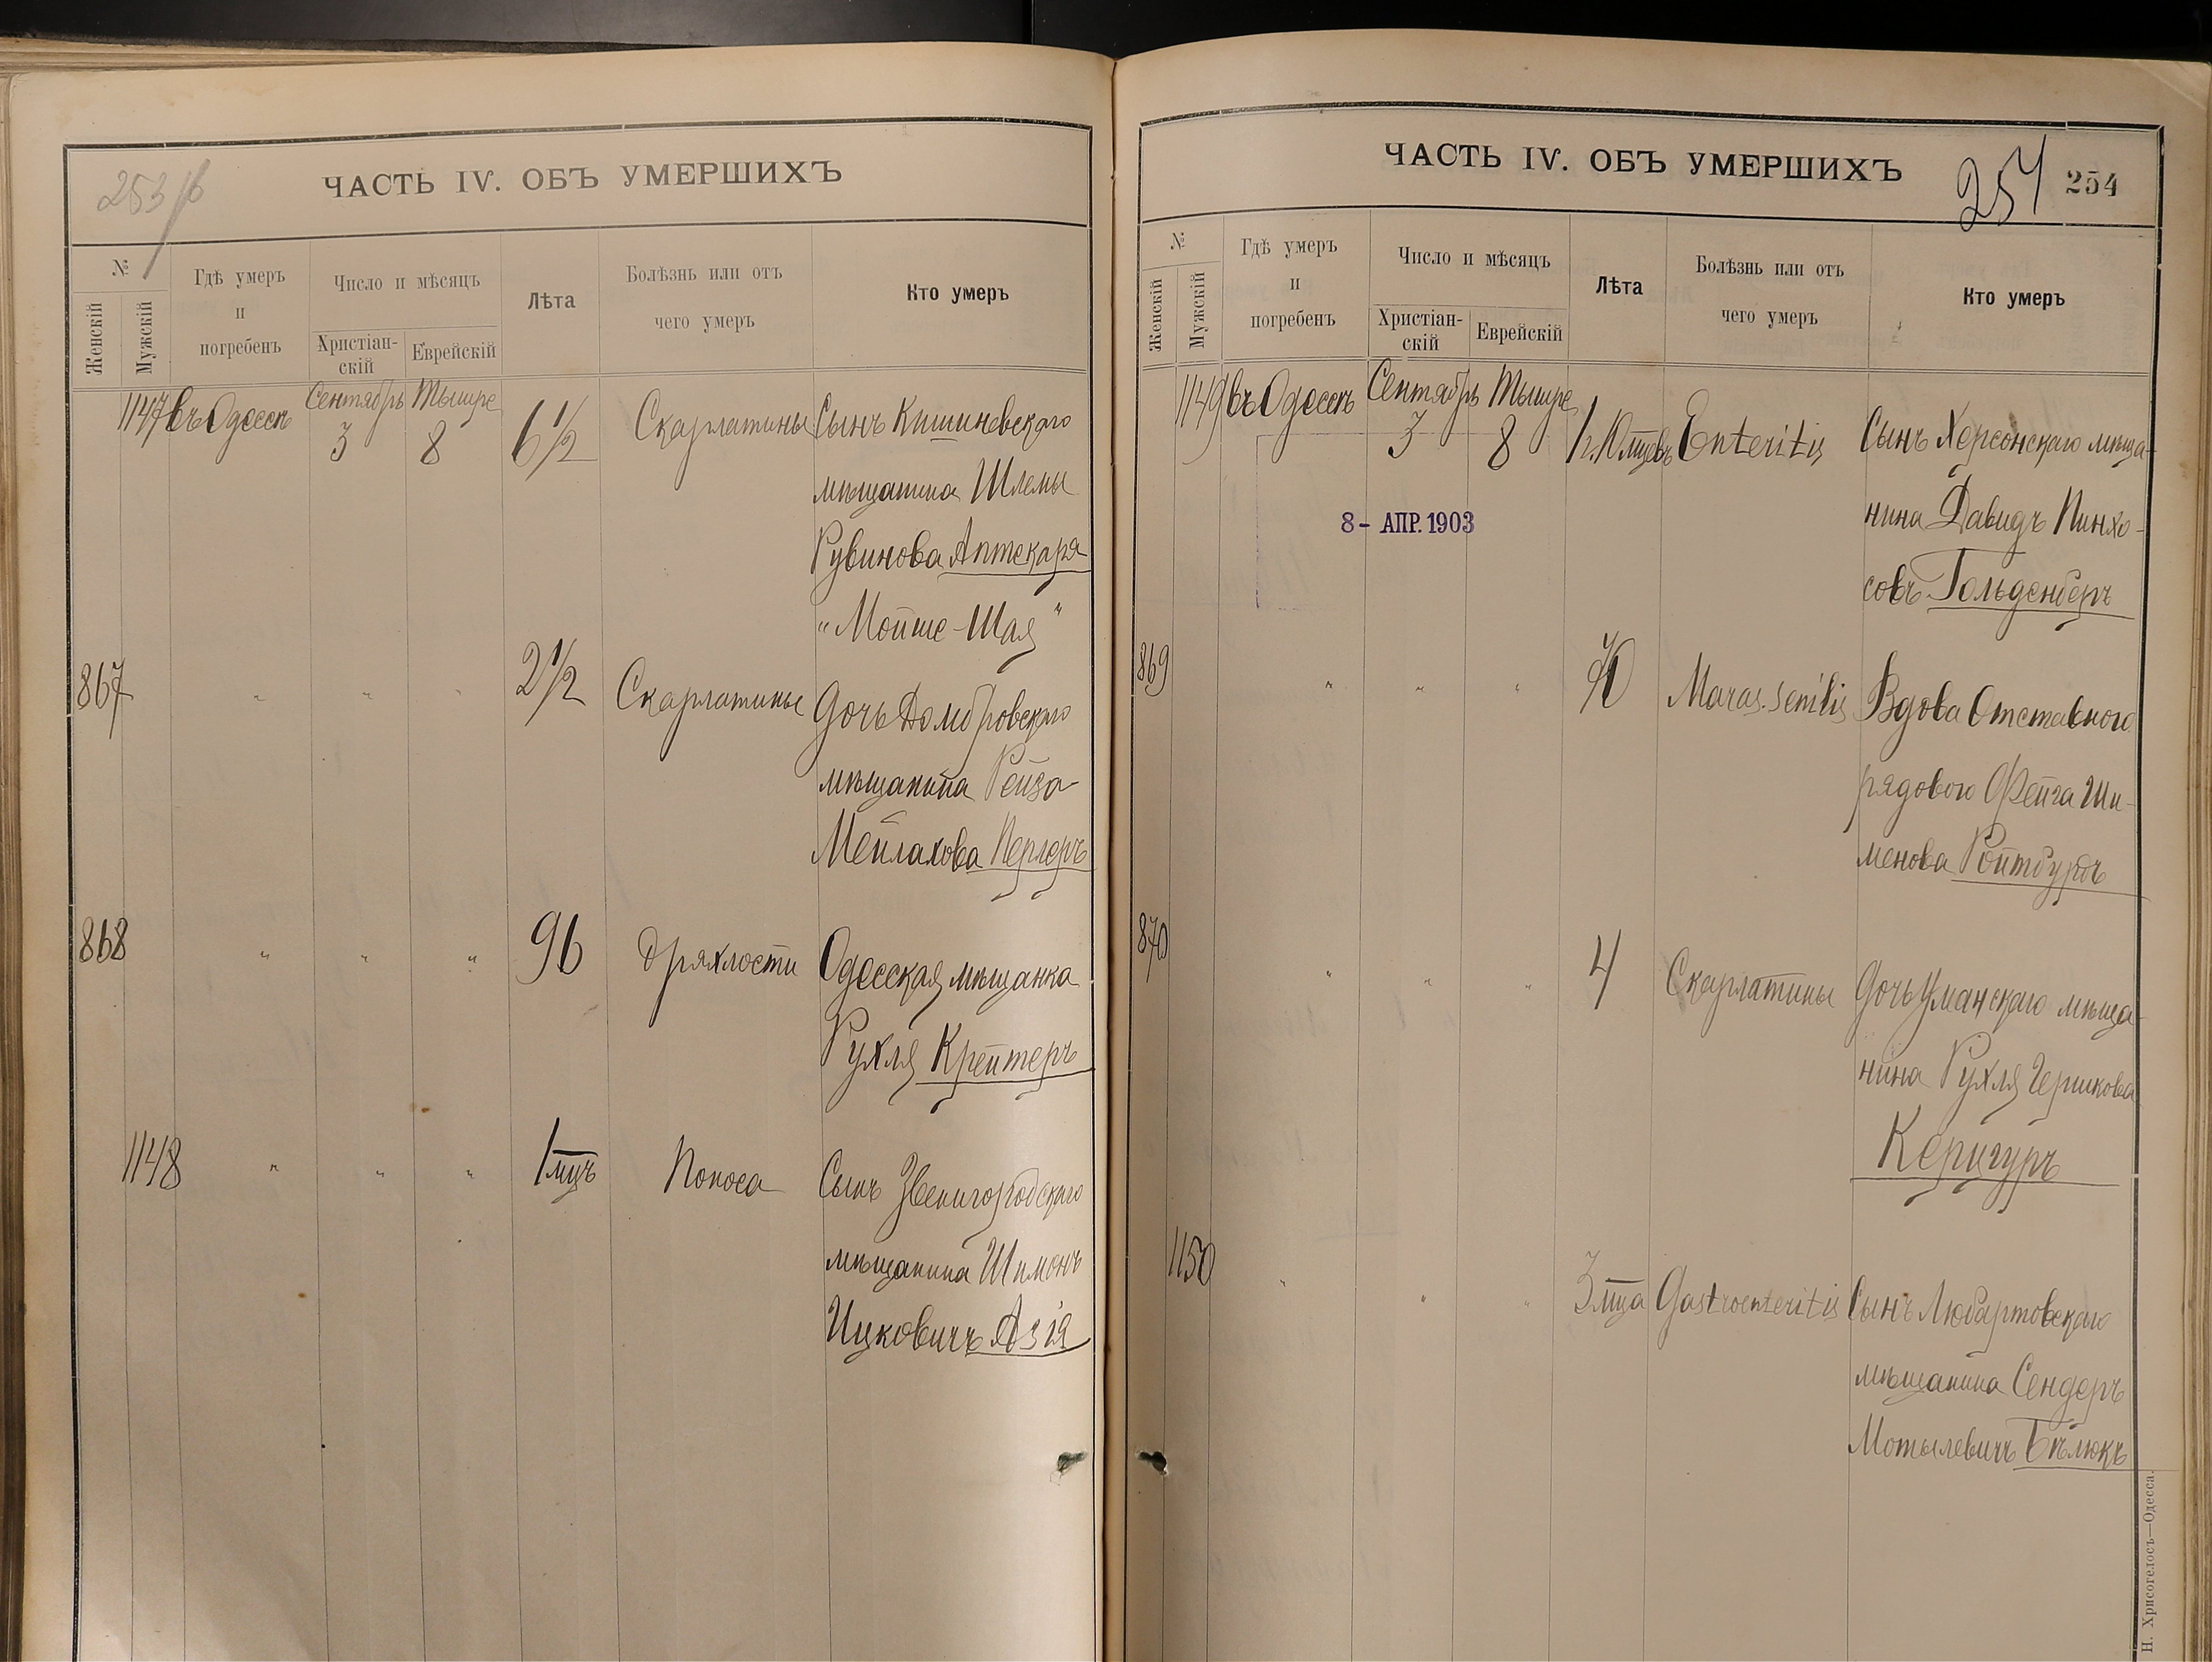 253/б
ЧАСТЬ IV. ОБЪ УМЕРШИХЪ
№
Женскій
Мужскій
Гдѣ умеръ
и
погребенъ
Число и мѣсяцъ
Христіан-
скій
Еврейскій
Лѣта
Болѣзнь или отъ
чего умеръ
Кто умеръ
1147 въ Одессѣ Сентябрь 3 Тишре 8 6 1/2 Скарлатины Сынъ Кишиневскаго
мѣщанина Шлемы
Рувинова Аптекаря
„Мойше-Шая"
867 " " " 2 1/2 Скарлатины Дочь Домбровскаго
мѣщанина Рейза
Мейлахова Перлеръ
868 " " " 96 Дряхлости Одесская мѣщанка
Рухля Крейтеръ
1148 " " " 1 мцъ Поноса Сынъ Звенигородскаго
мѣщанина Шимонъ
Ицковичъ Азія
ЧАСТЬ IV. ОБЪ УМЕРШИХЪ
254
254
№
Женскій
Мужскій
Гдѣ умеръ
и
погребенъ
Число и мѣсяцъ
Христіан-
скій
Еврейскій
Лѣта
Болѣзнь или отъ
чего умеръ
Кто умеръ
1149 въ Одессѣ Сентябрь 3 Тишре 8 1 г. 10 мцевъ Enteritis Сынъ Херсонскаго мѣща-
нина Давидъ Пинхо-
совъ Гольденберъ
8- АПР. 1903
869 " " " Maras. senilis Вдова Отставного
рядового Фейга Ши-
менова Ройтбурдъ
870 " " " 4 Скарлатины Дочь Уманскаго мѣща-
нина Рухля Гершкова
Керцгуръ
1150 " " " 3 мца Gastroenteritis Сынъ Любартовскаго
мѣщанина Сендеръ
Мотылевичъ Бѣлюкъ
Н. Хрисогелосъ—Одесса.